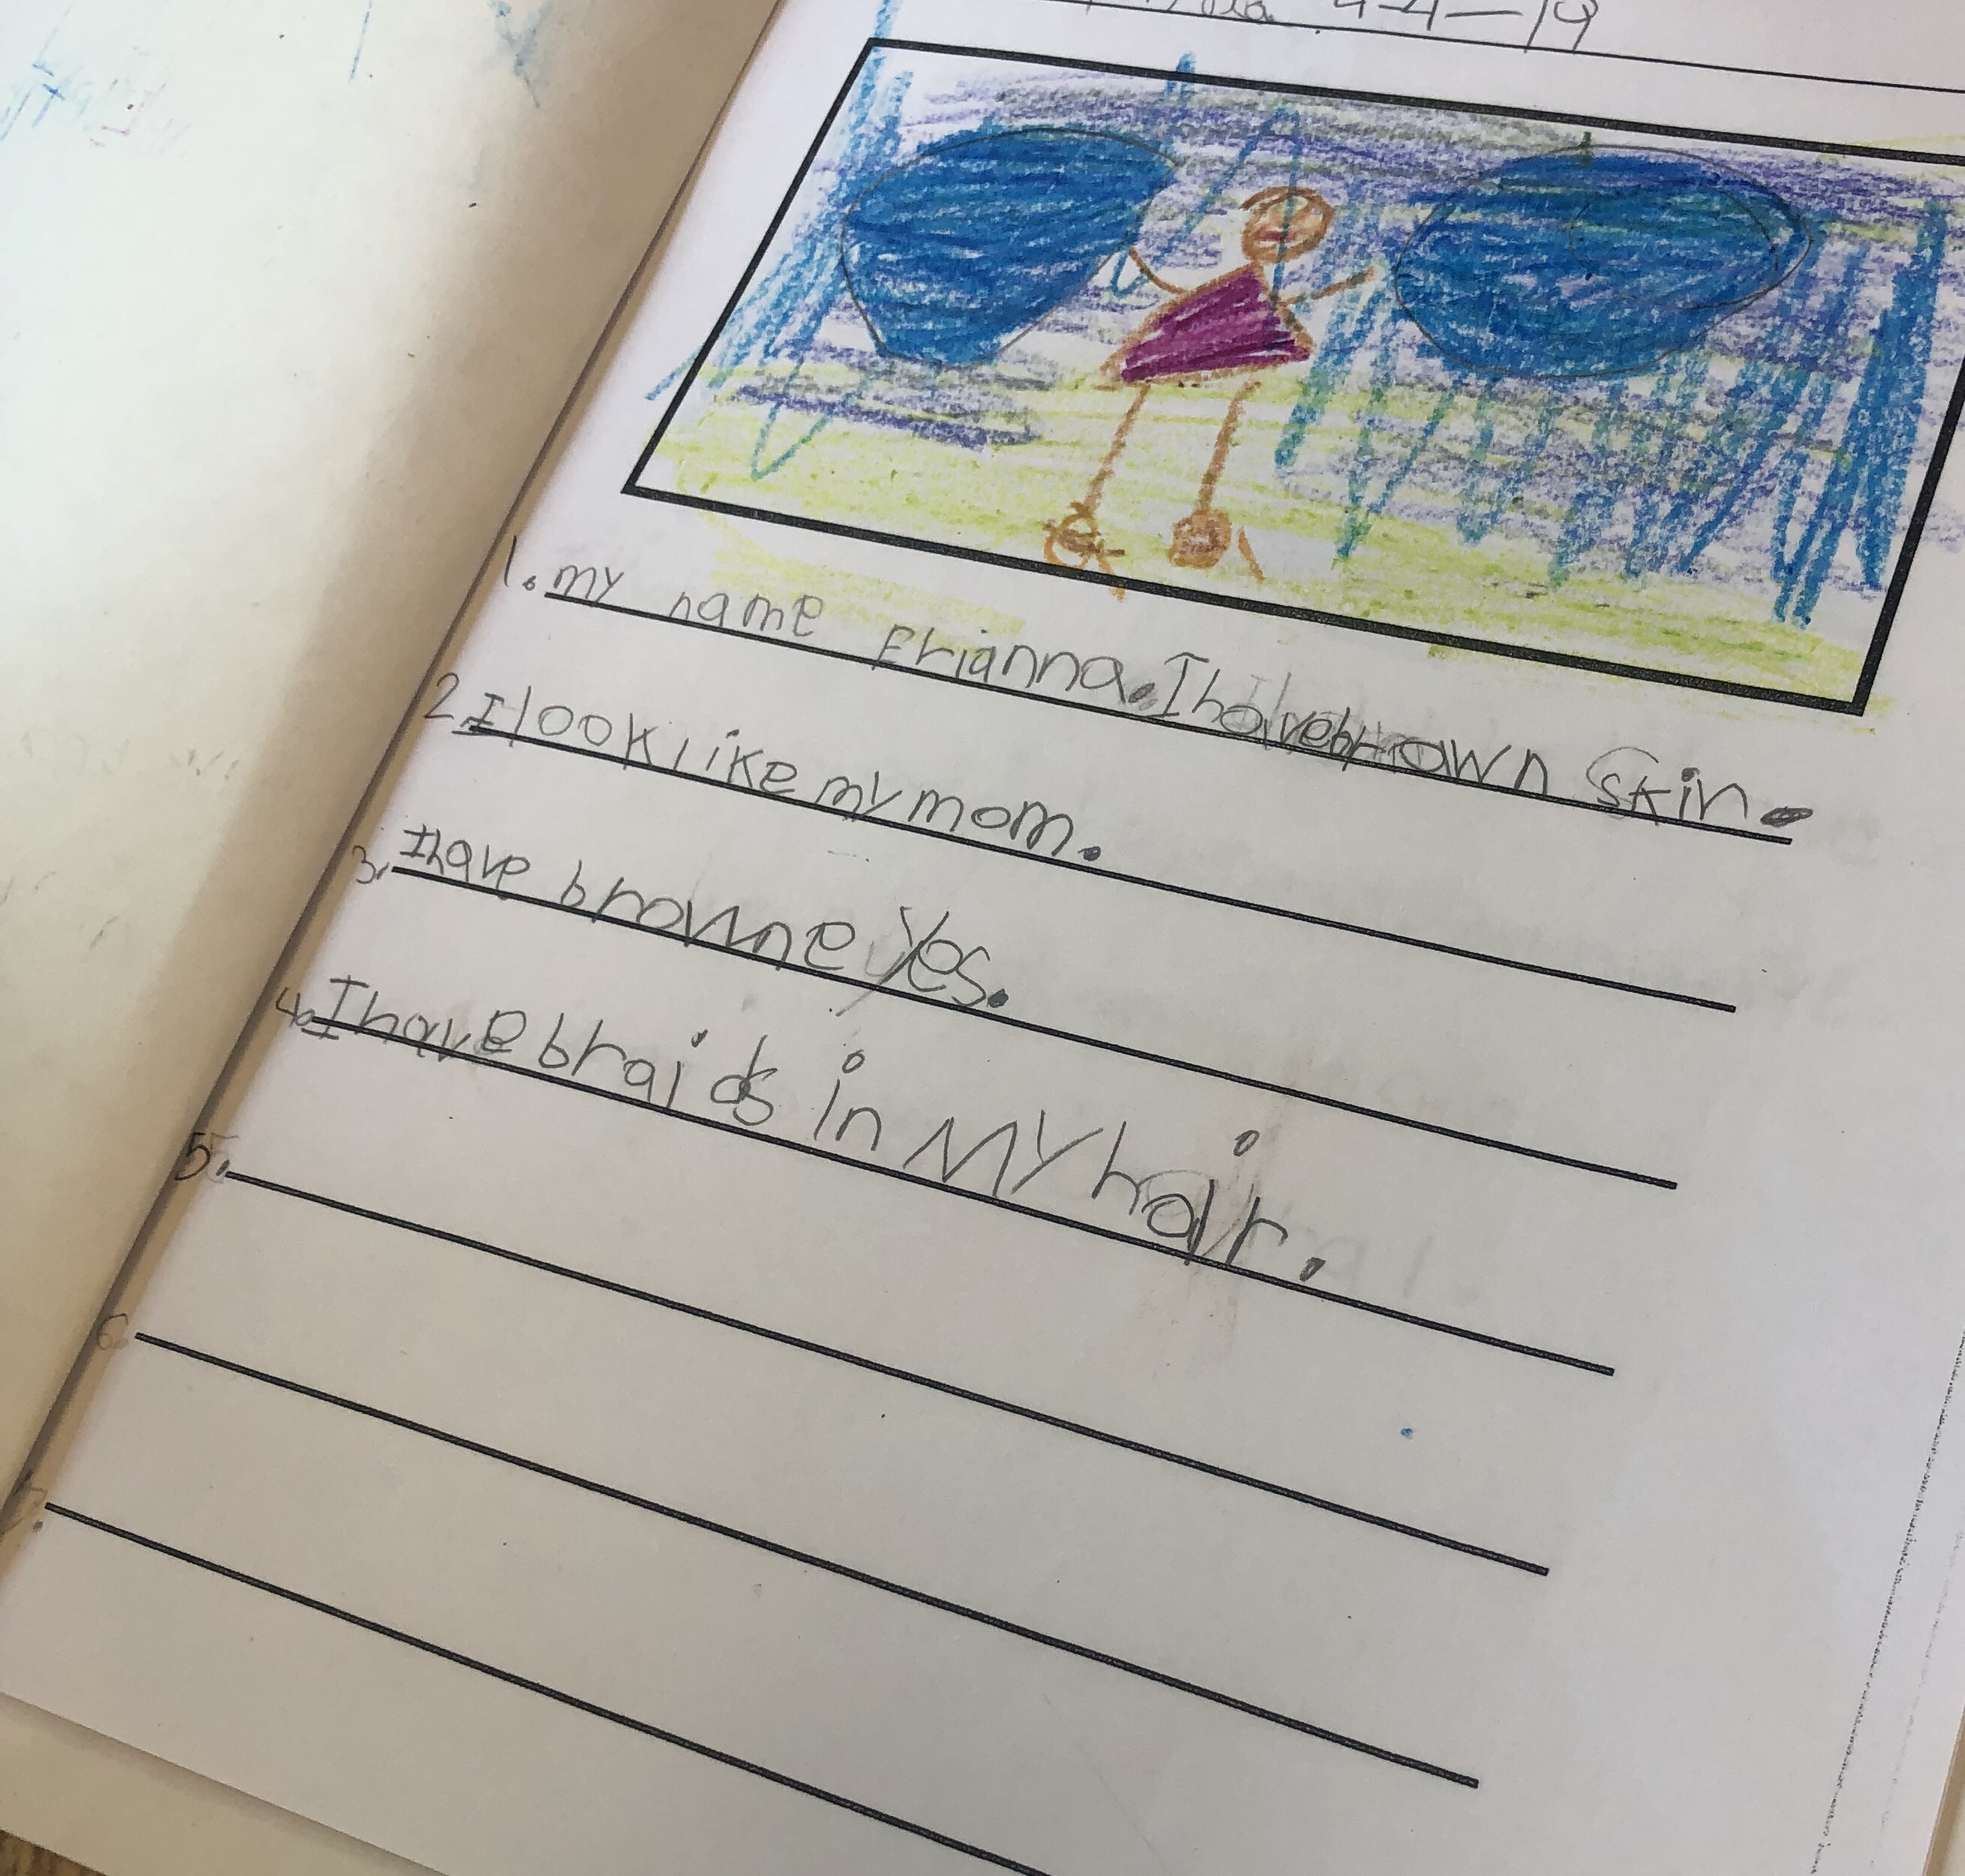 4-4-19
1. my name Erianna. I have brown skin.
2. I look like my mom.
3. I have browne yes.
4. I have braids in My hair.
5.
6.
7.